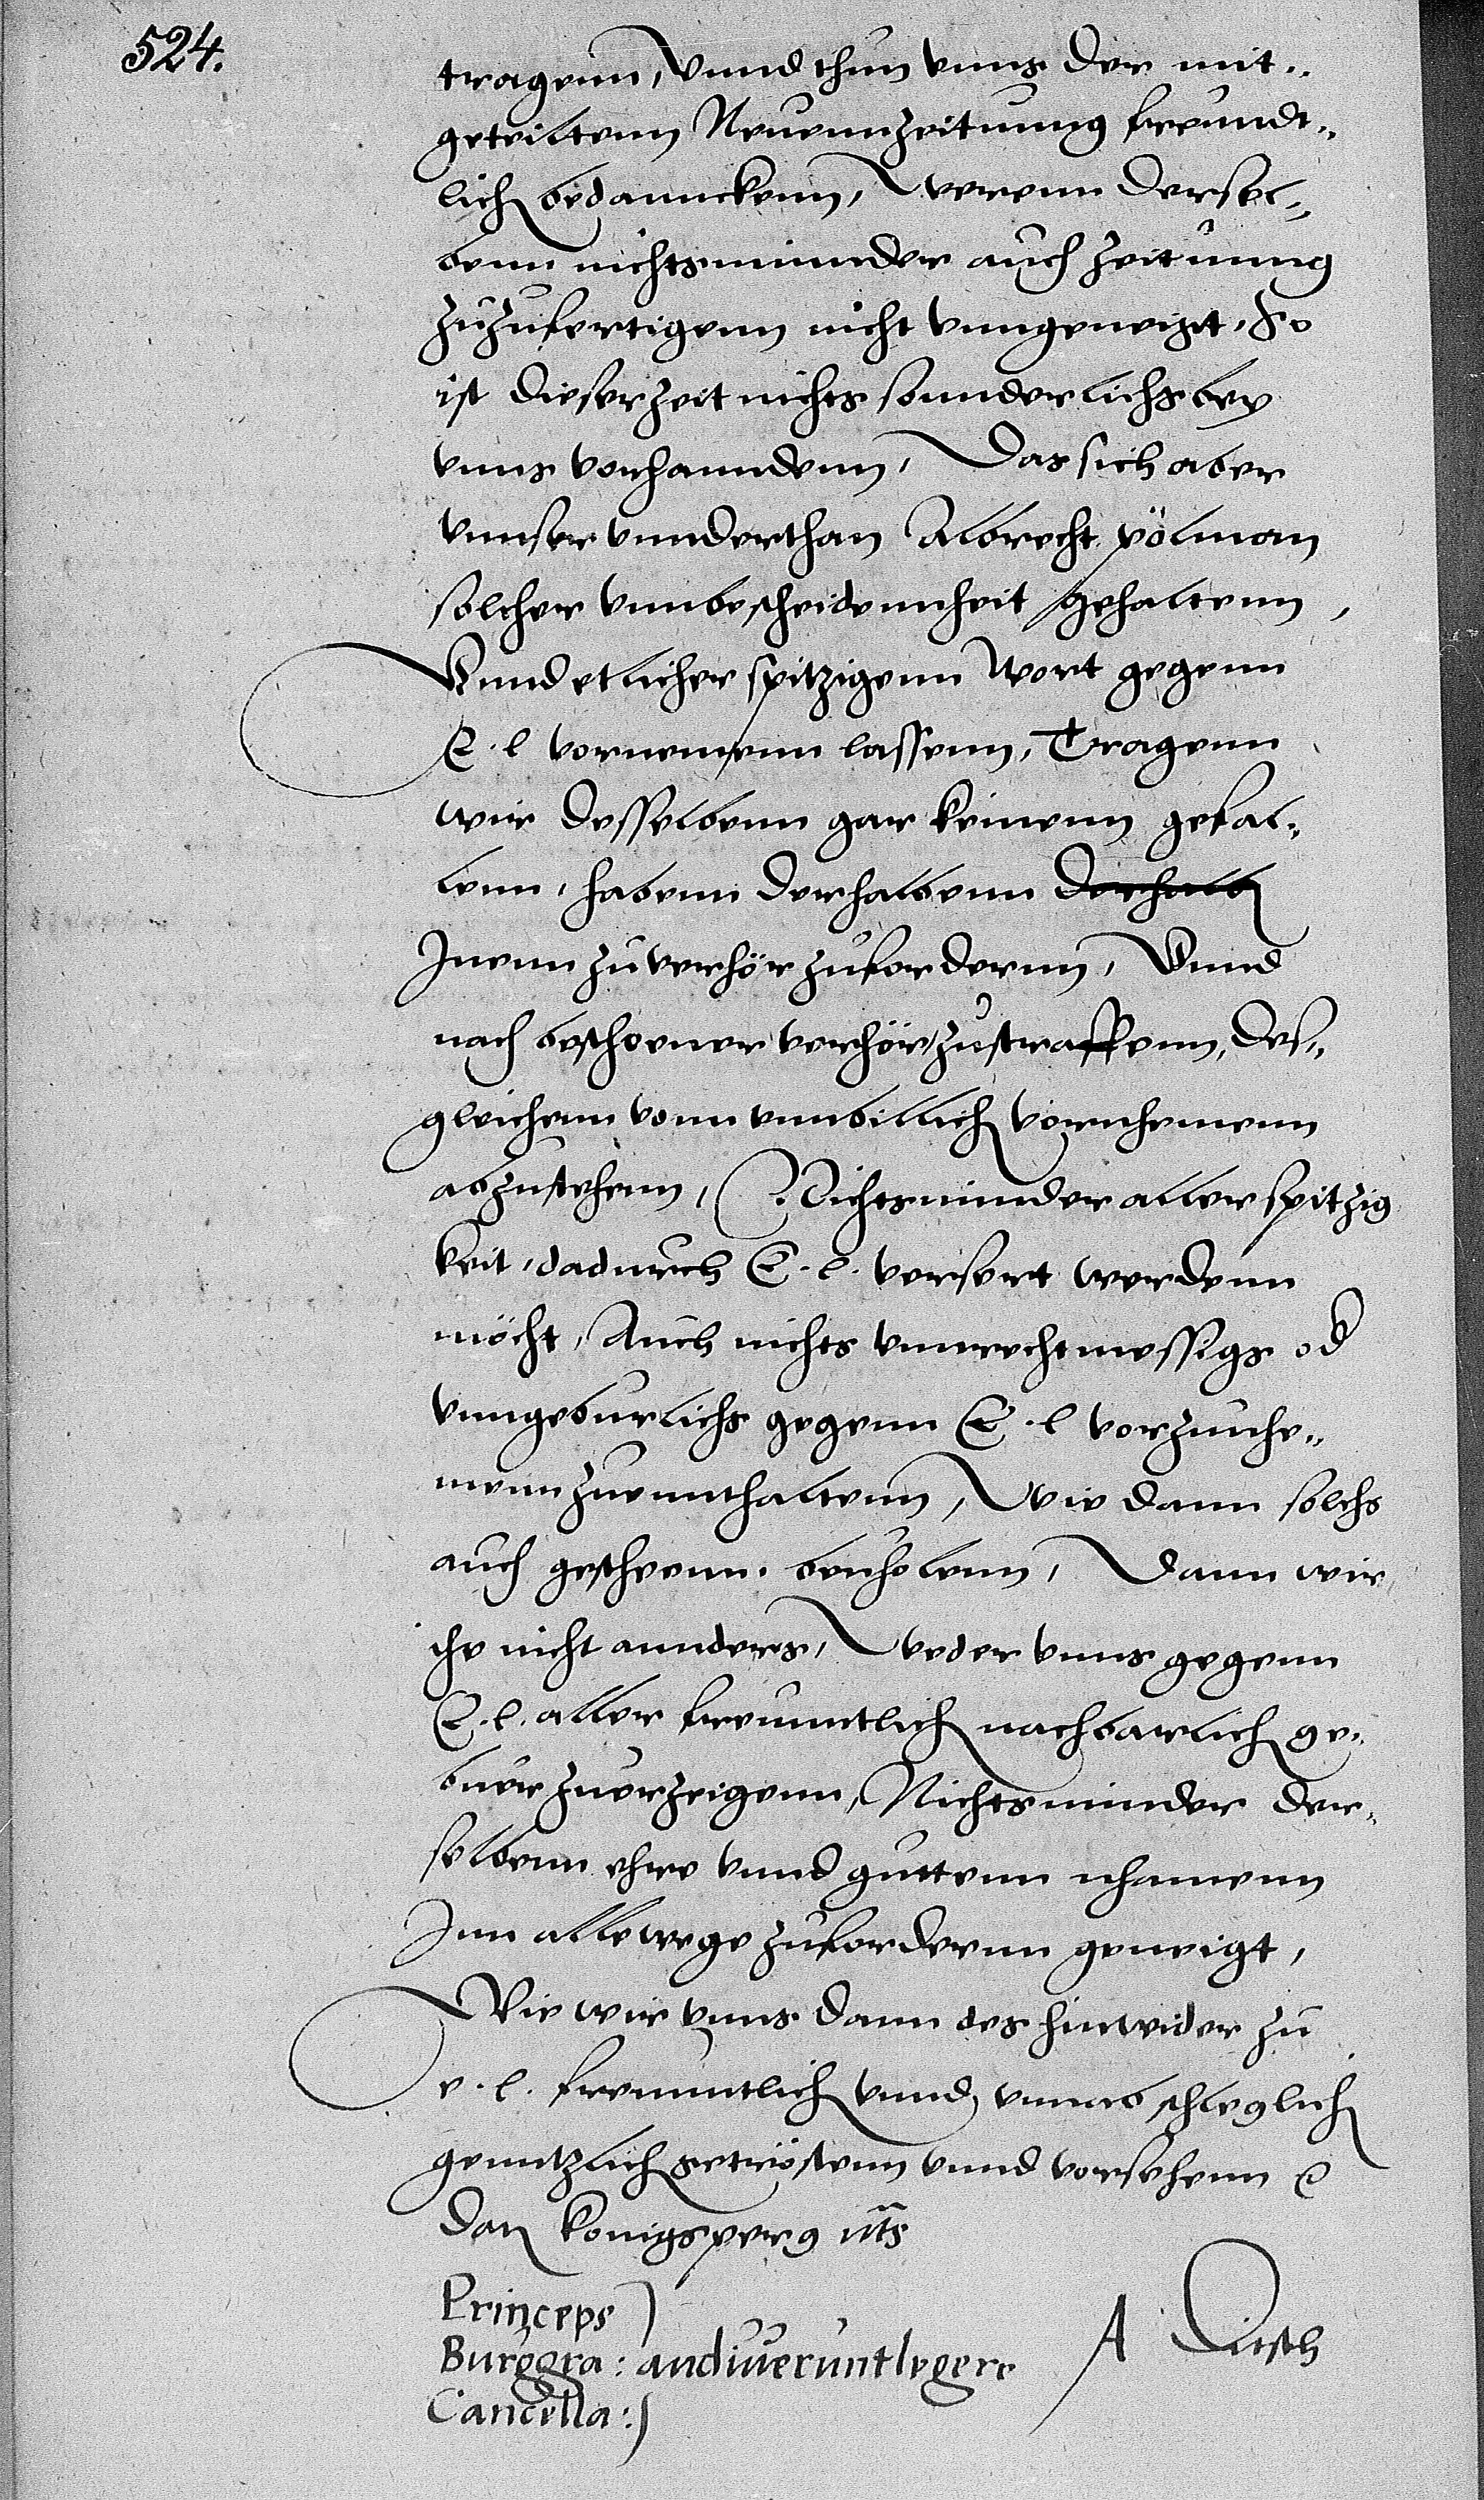 524.
tragenn, Vnnd thun vnns der mit„
geteiltenn Neuennzeitunng freundt„
lich bedannckenn, Werenn dersel„
benn nichtsminnder auch zeitunng
zuzufertigenn nicht vngeneigt, So
ist dieserzeit nichts sonnderlichs bey
vnns vorhanndenn, Das sich aber
vnnser vnnderthan Albrecht pölman
solcher vnnbescheidennheit gehaltenn,
Vnnd etlicher spitzigenn Wort gegenn
E. l vornemenn lassenn, Tragenn
wir desselbenn gar keinenn gefal„
lenn, habenn derhalbenn derhalb
Inenn zu verhör zufordernn, Vnnd
nach beschener verhör zustraffenn, des„
gleichenn vonn vnnbillich vornhemenn
abzustehenn, Nichtsminnder aller spitzig
keit, dadurch E. l. versert werdenn
möcht, Auch nichts vnnrechtmessigs od
vnngeburlichs gegenn E. l vorzunhe„
menn zuennthaltenn, Wie dann solchs
auch gescheenn. beuholenn, Dann wir
ihe nicht annders, Weder vnns gegenn
E. l. aller freunntlich nachbarlich ge„
buer zuerzeigenn, Nichtsminder der„
selbenn ehre vnnd guttenn nhamenn
Inn allewege zufordernn geneigt,
Wie wir vnns dann des hinwider zu
e. l. freunntlich vnnd vnnabschleglich
genntzlich getröstenn vnnd vorsehenn
Dat Konigsperg uts
Princeps
Burggra: audiuerunt legere
Cancella:
A